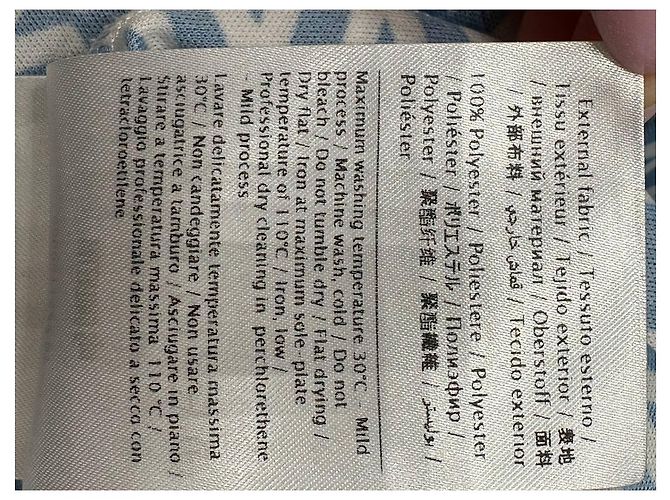 External fabric / Tessuto esterno /
Tissu extérieur / Tejido exterior / 表地
/ внешний материал / Oberstoff / 面料
/ 外部布料 / قماش خارجي / Tecido exterior
100% Polyester / Poliestere / Polyester
/ Poliéster / ポリエステル / Полиэфир /
Polyester / 聚酯纤维 / 聚酯纖維 / بوليستر /
Poliéster
Maximum washing temperature 30°C - Mild
process / Machine wash, cold / Do not
bleach / Do not tumble dry / Flat drying /
Dry flat / Iron at maximum sole-plate
temperature of 110°C / Iron, low /
Professional dry cleaning in perchlorethene
- Mild process
Lavare delicatamente temperatura massima
30°C / Non candeggiare / Non usare
asciugatrice a tamburo / Asciugare in piano /
Stirare a temperatura massima 110°C /
Lavaggio professionale delicato a secco con
tetracloroetilene